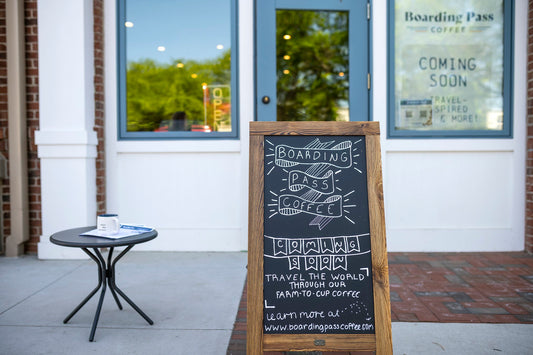 Boarding Pass
COFFEE
COMING
SOON
TRAVEL-
SPIRED
& MORE!
OPEN
BOARDING
PASS
COFFEE
COMING
SOON
TRAVEL THE WORLD
THROUGH OUR
FARM-TO-CUP COFFEE
Learn more at
www.boardingpasscoffee.com